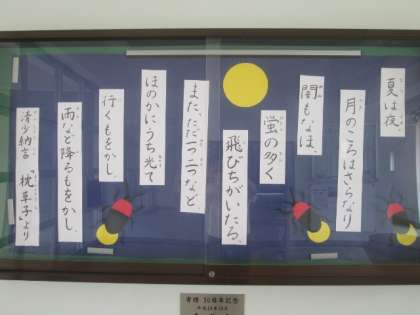 夏は夜。
月のころはさらなり
闇もなほ、
蛍の多く
飛びちがいたる。
また、ただ一つ二つなど
ほのかにうち光て
行くもをかし。
雨など降るもをかし。
清少納言 『枕草子』より
30周年記念